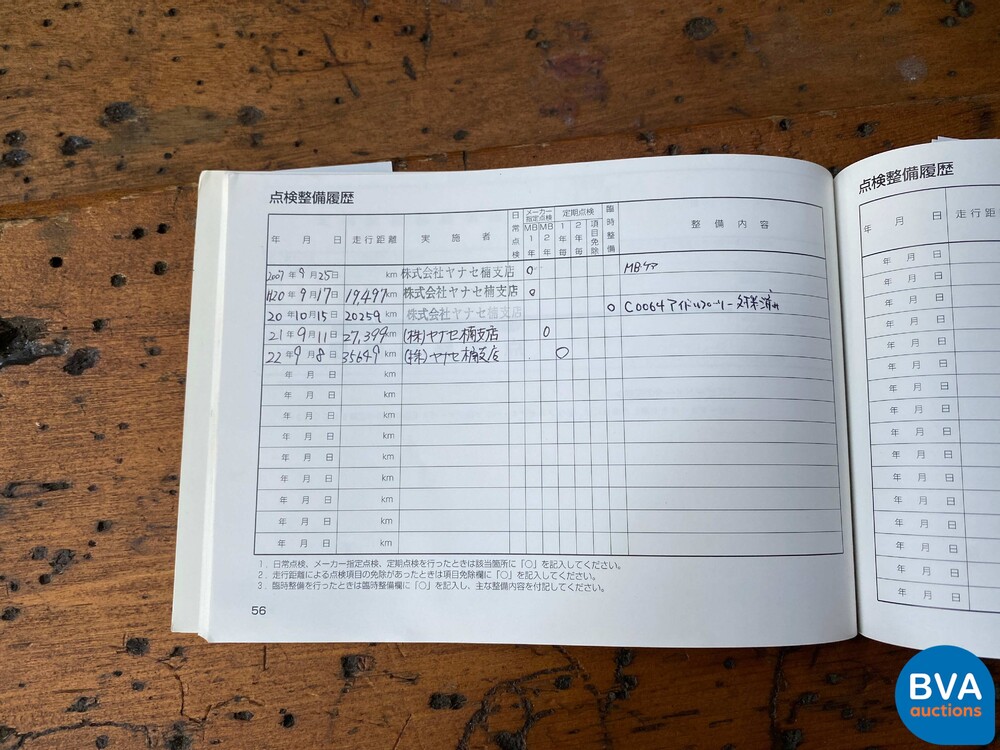 点検整備履歴
年 月 日 走行距離 実施者 日常点検 メーカー指定点検 MB1年 MB2年 定期点検 1年毎 2年毎 項目免除 臨時整備 整備内容
2007年9月25日 km 株式会社ヤナセ楠支店 ○ MBケア
H20年9月17日 19,497km 株式会社ヤナセ楠支店 ○
20年10月15日 20259km 株式会社ヤナセ楠支店 ○ C0064アイドルプーリー対策済み
21年9月11日 27,399km (株)ヤナセ楠支店 ○
22年9月8日 35649km (株)ヤナセ楠支店 ○
年 月 日 km
年 月 日 km
年 月 日 km
年 月 日 km
年 月 日 km
年 月 日 km
年 月 日 km
年 月 日 km
年 月 日 km
1. 日常点検、メーカー指定点検、定期点検を行ったときは該当箇所に「○」を記入してください。
2. 走行距離による点検項目の免除があったときは項目免除欄に「○」を記入してください。
3. 臨時整備を行ったときは臨時整備欄に「○」を記入し、主な整備内容を付記してください。
56
点検整備履歴
年 月 日 走行距
年 月 日
年 月 日
年 月 日
年 月 日
年 月 日
年 月 日
年 月 日
年 月 日
年 月 日
年 月 日
年 月 日
年 月 日
年 月 日
年 月 日
BVA
auctions